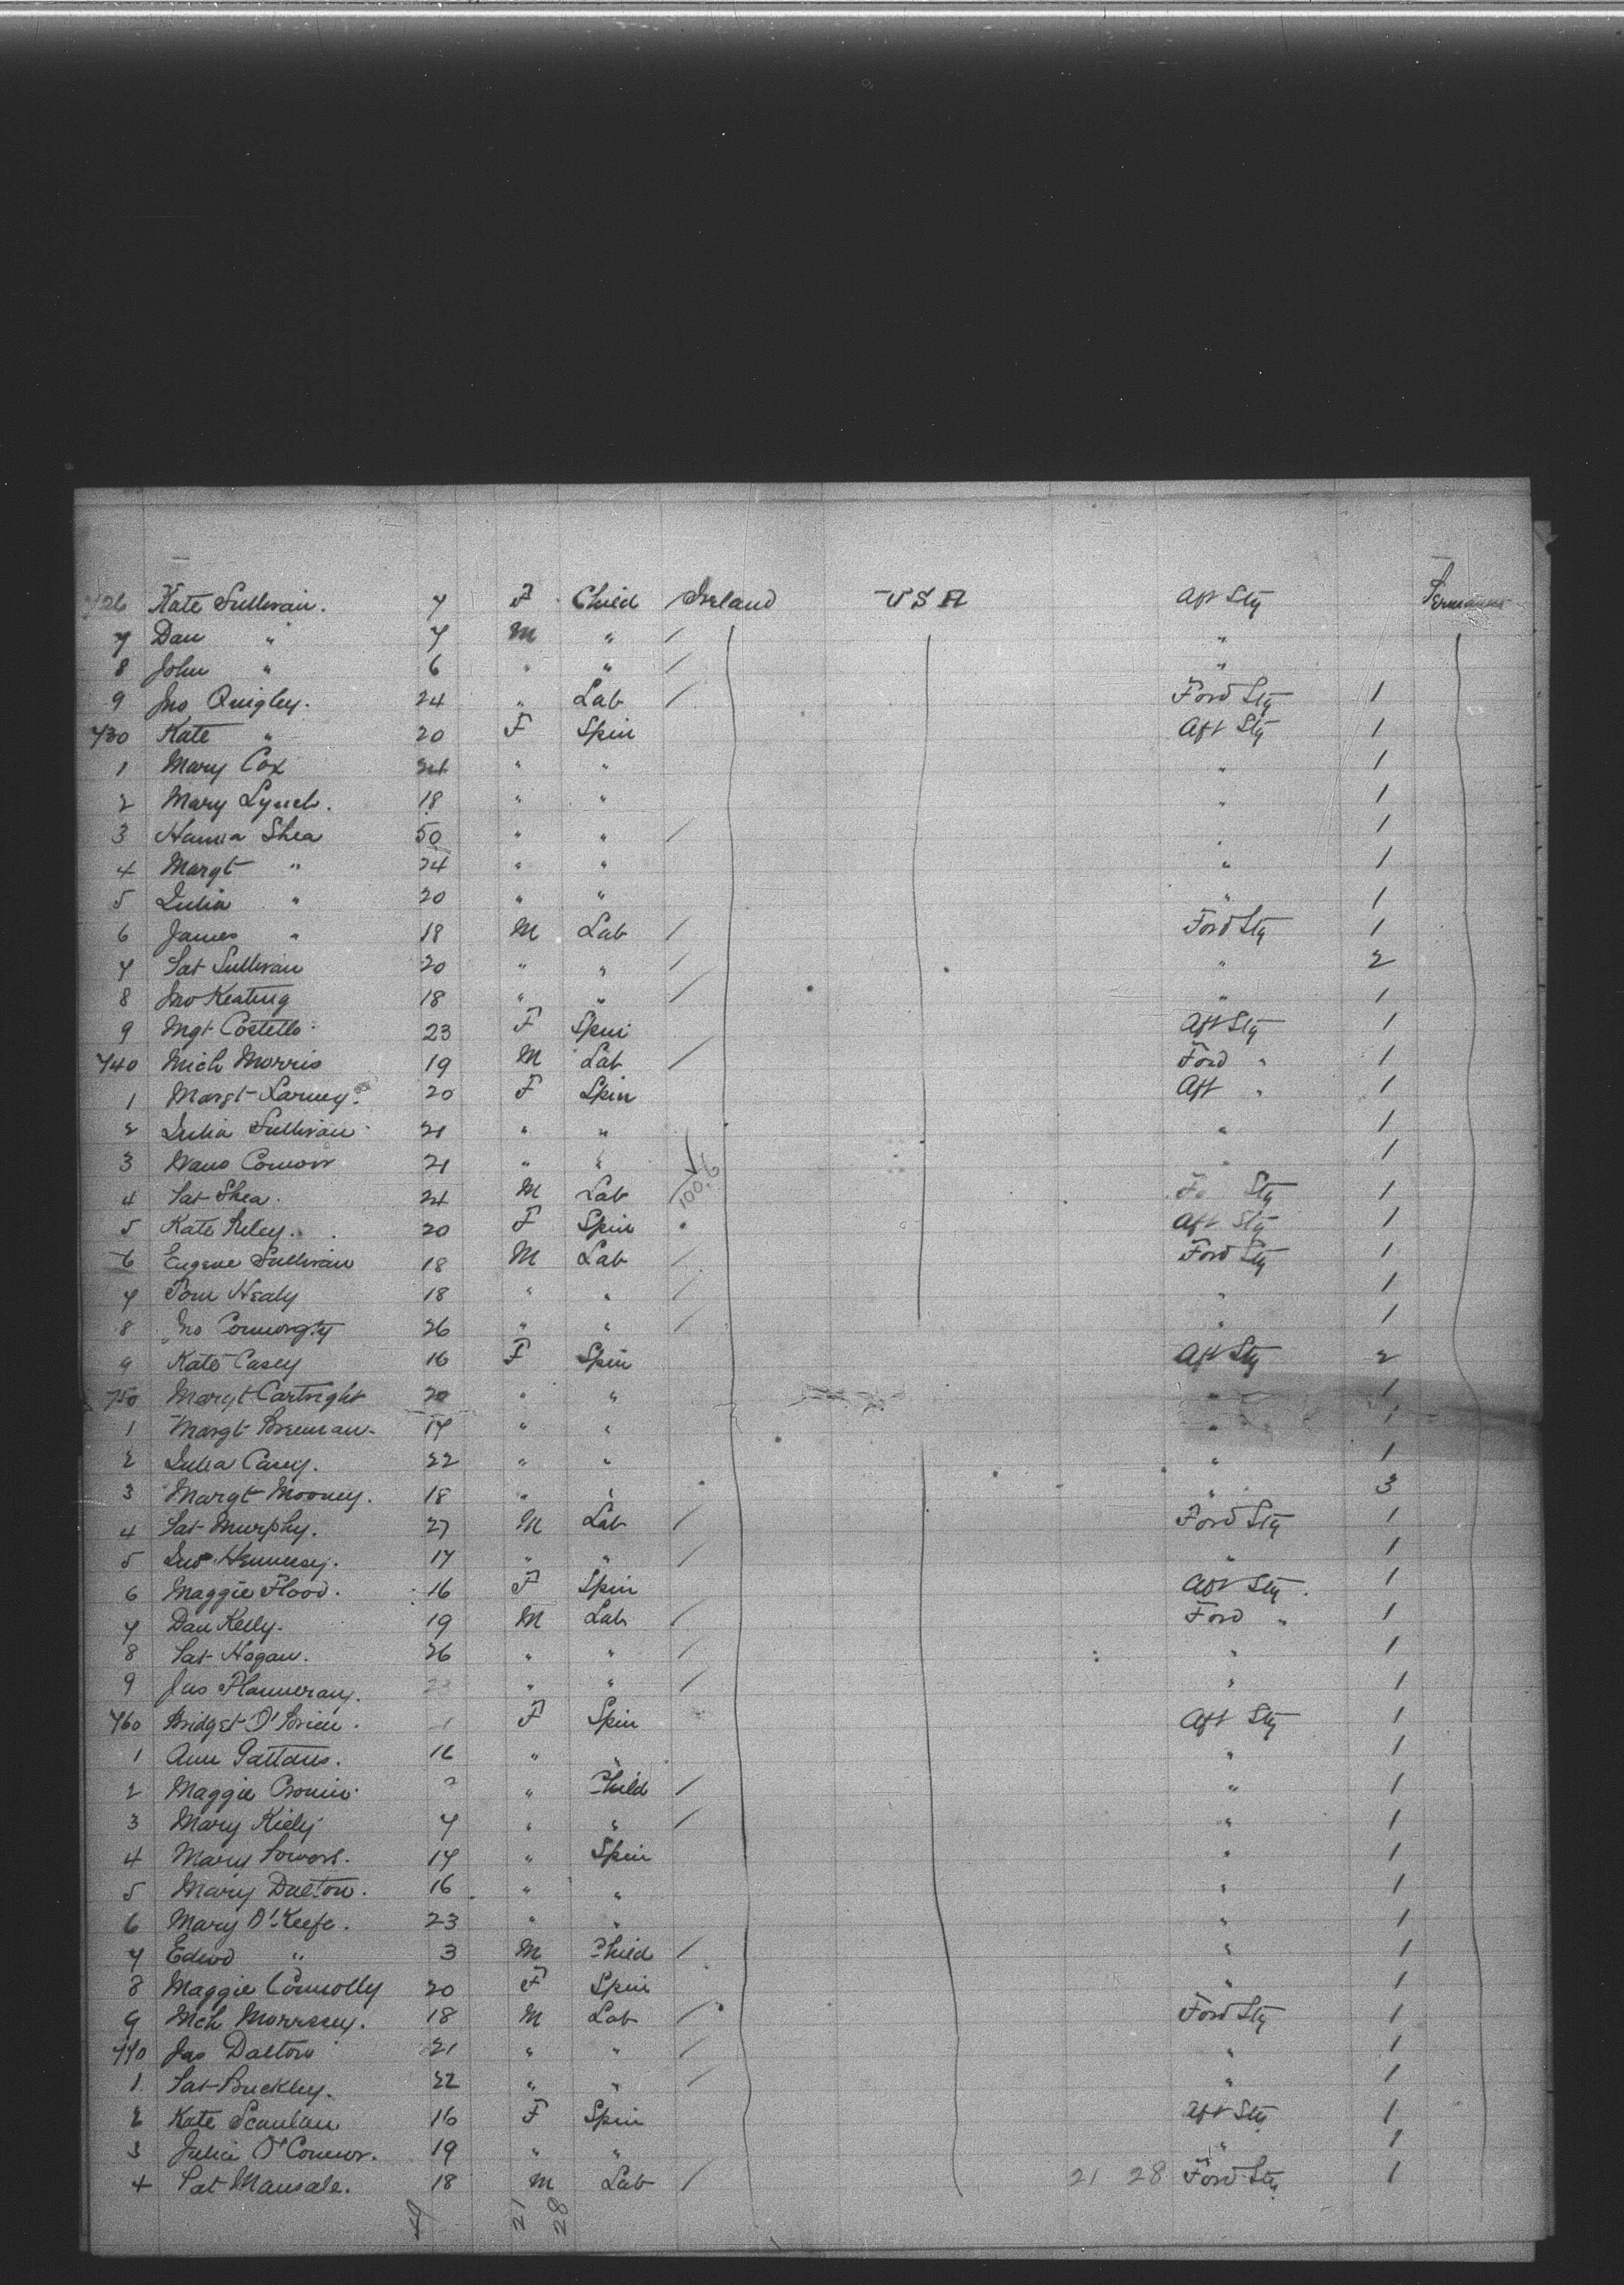 726 Kate Sullivan. 7 F Child / Ireland U S A Aft Stg Permanent
7 Dan " 7 M " / "
8 John " 6 " " / "
9 Jno Quigley. 24 " Lab / Ford Stg 1
730 Kate " 20 F Spin Aft Stg 1
1 Mary Cox 24 " " " 1
2 Mary Lynch. 18 " " " 1
3 Hanna Shea 50 " " / " 1
4 Margt " 24 " " " 1
5 Julia " 20 " " " 1
6 James " 18 M Lab / Ford Stg 1
7 Pat Sullivan 20 " " / " 2
8 Jno Keating 18 " " / " 1
9 Mgt Costello 23 F Spin Aft Stg 1
740 Mich Morris 19 M Lab / Ford " 1
1 Margt 20 F Spin Aft " 1
2 Julia Sullivan 21 " " " 1
3 Connor 21 " " " 1
4 Pat Shea. 24 M Lab / Stg 1
5 Kate 20 F Spin Aft Stg 1
6 Eugene Sullivan 18 M Lab / Ford Stg 1
7 Tom Healy 18 " " / " 1
8 Jno 26 " " / " 1
9 Kate Casey 16 F Spin Aft Stg 2
750 Margt Cartright 20 " " " 1
1 Margt Brennan. 17 " " " 1
2 Julia Casey. 22 " " " 1
3 Margt Mooney. 18 " " " 3
4 Pat Murphy. 27 M Lab / Ford Stg 1
5 Jno Hennesy. 17 " " / " 1
6 Maggie Flood. 16 F Spin Aft Stg. 1
7 Dan Kelly. 19 M Lab / Ford " 1
8 Pat Hogan. 26 " " / " 1
9 Jas " " / " 1
760 Bridget O'Brien. F Spin Aft Stg 1
1 Ann 16 " " " 1
2 Maggie Cronin. " Child / " 1
3 Mary Kiely 7 " " / " 1
4 Mary 17 " Spin " 1
5 Mary Dalton. 16 " " " 1
6 Mary O'Keefe. 23 " " " 1
7 Edwd " 3 M Child / " 1
8 Maggie Connolly 20 F Spin " 1
9 Mch Morrssey. 18 M Lab / Ford Stg 1
770 Jas Dalton 21 " " / " 1
1. Pat Buckley. 22 " " / " 1
2 Kate Scanlan 16 F Spin Aft Stg 1
3 Julia O'Connor. 19 " " " 1
4 Pat Mansale. 18 M Lab / 21 28 Ford Stg 1
49 21 28